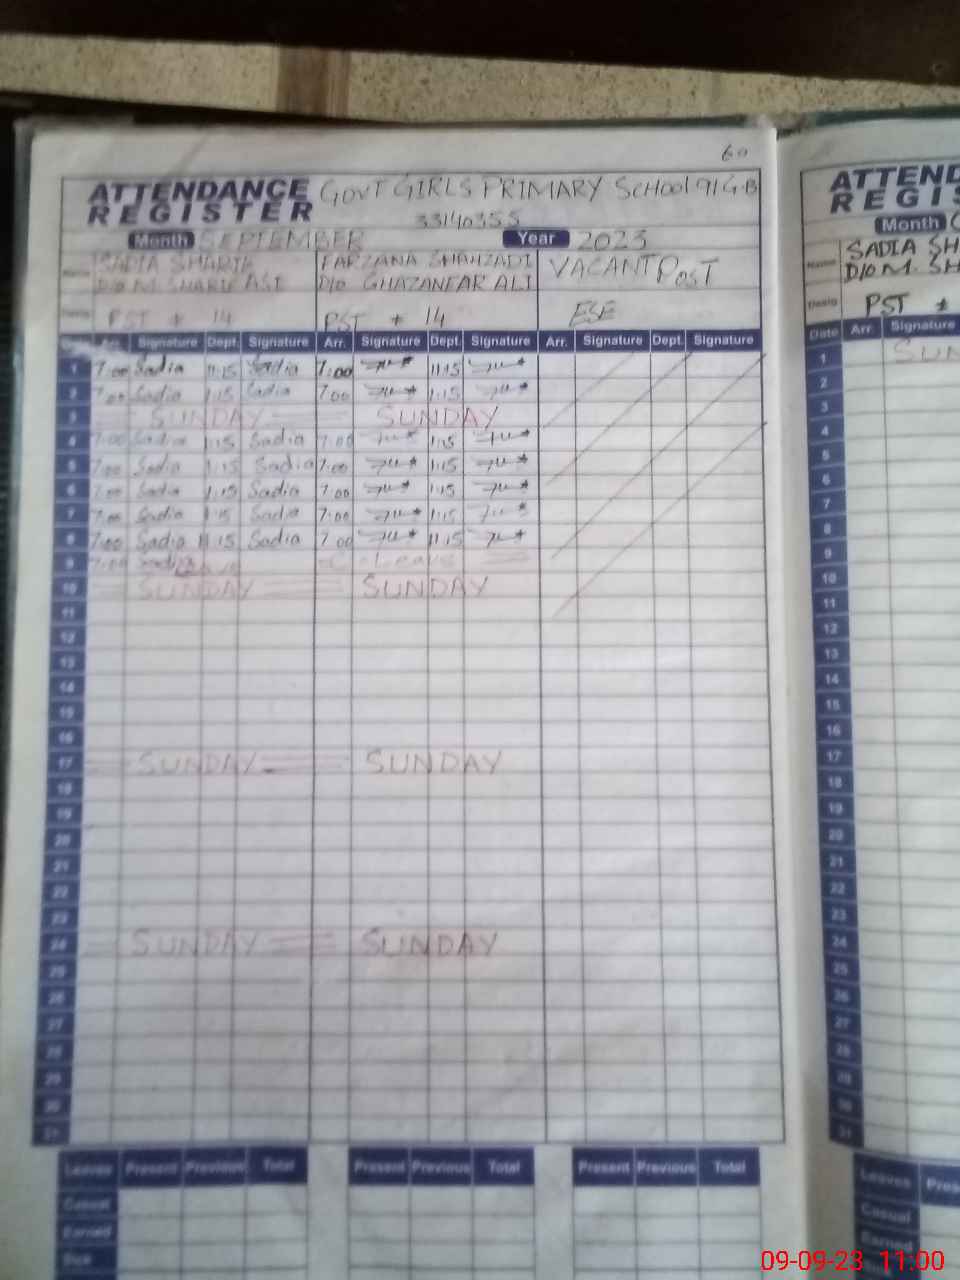 60
ATTENDANCE REGISTER GOVT GIRLS PRIMARY SCHOOL 91 G.B
33140355
Month SEPTEMBER Year 2023
Name SADIA SHARIF FARZANA SHAHZADI VACANT POST
D/O M. SHARIF D/O GHAZANFAR ALI
Desig PST * 14 PST * 14 ESE
Arr. Signature Dept. Signature Arr. Signature Dept. Signature Arr. Signature Dept. Signature
1 7:00 Sadia 11:15 Sadia 7:00 11:15
2 7:00 Sadia 1:15 Sadia 7:00 1:15
3 SUNDAY SUNDAY
4 7:00 Sadia 1:15 Sadia 7:00 1:15
5 7:00 Sadia 1:15 Sadia 7:00 1:15
6 7:00 Sadia 1:15 Sadia 7:00 1:15
7 7:00 Sadia 1:15 Sadia 7:00 1:15
8 7:00 Sadia 11:15 Sadia 7:00 11:15
9 7:00 Sadia Leave
10 SUNDAY SUNDAY
11
12
13
14
15
16
17 SUNDAY SUNDAY
18
19
20
21
22
23
24 SUNDAY SUNDAY
25
26
27
28
29
30
31
Leaves Present Previous Total Present Previous Total Present Previous Total
Casual
Earned
Sick
ATTEND
REGIS
Month
Name SADIA SH
D/O M. SH
Desig PST *
Date Arr. Signature
1 SUN
2
3
4
5
6
7
8
9
10
11
12
13
14
15
16
17
18
19
20
21
22
23
24
25
26
27
28
29
30
31
Leaves Pres
Casual
Earned
09-09-23 11:00